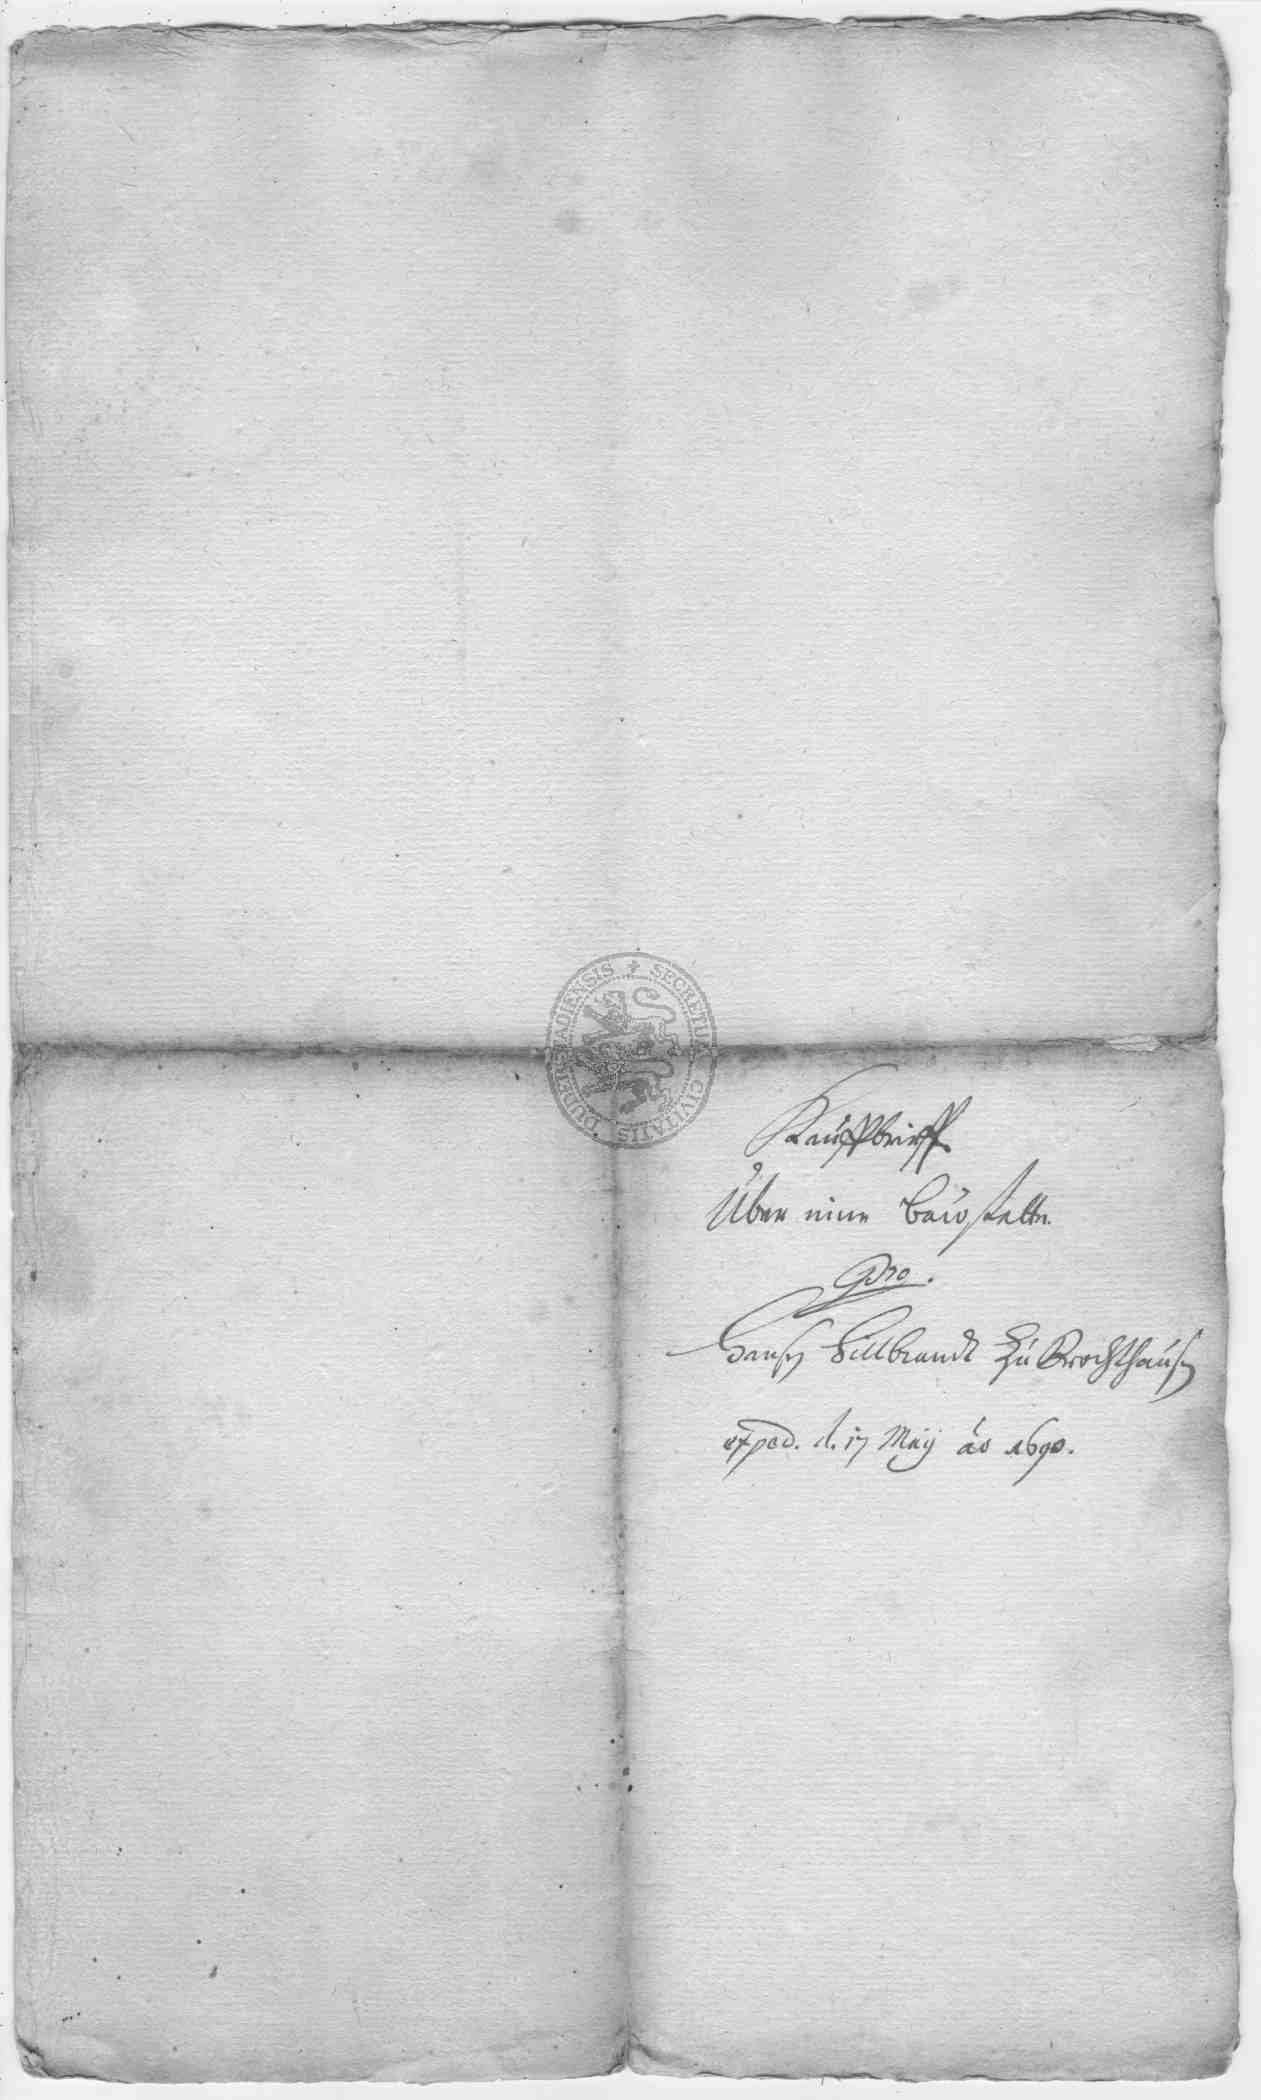 SECRETUM CIVITATIS DUDERSTADIENSIS
Kauffbrieff
Über eine Baustette.
Pro.
Hansen Hillbrandt zu Brochthausen
exped. d. 17 Maÿ ao 1690.